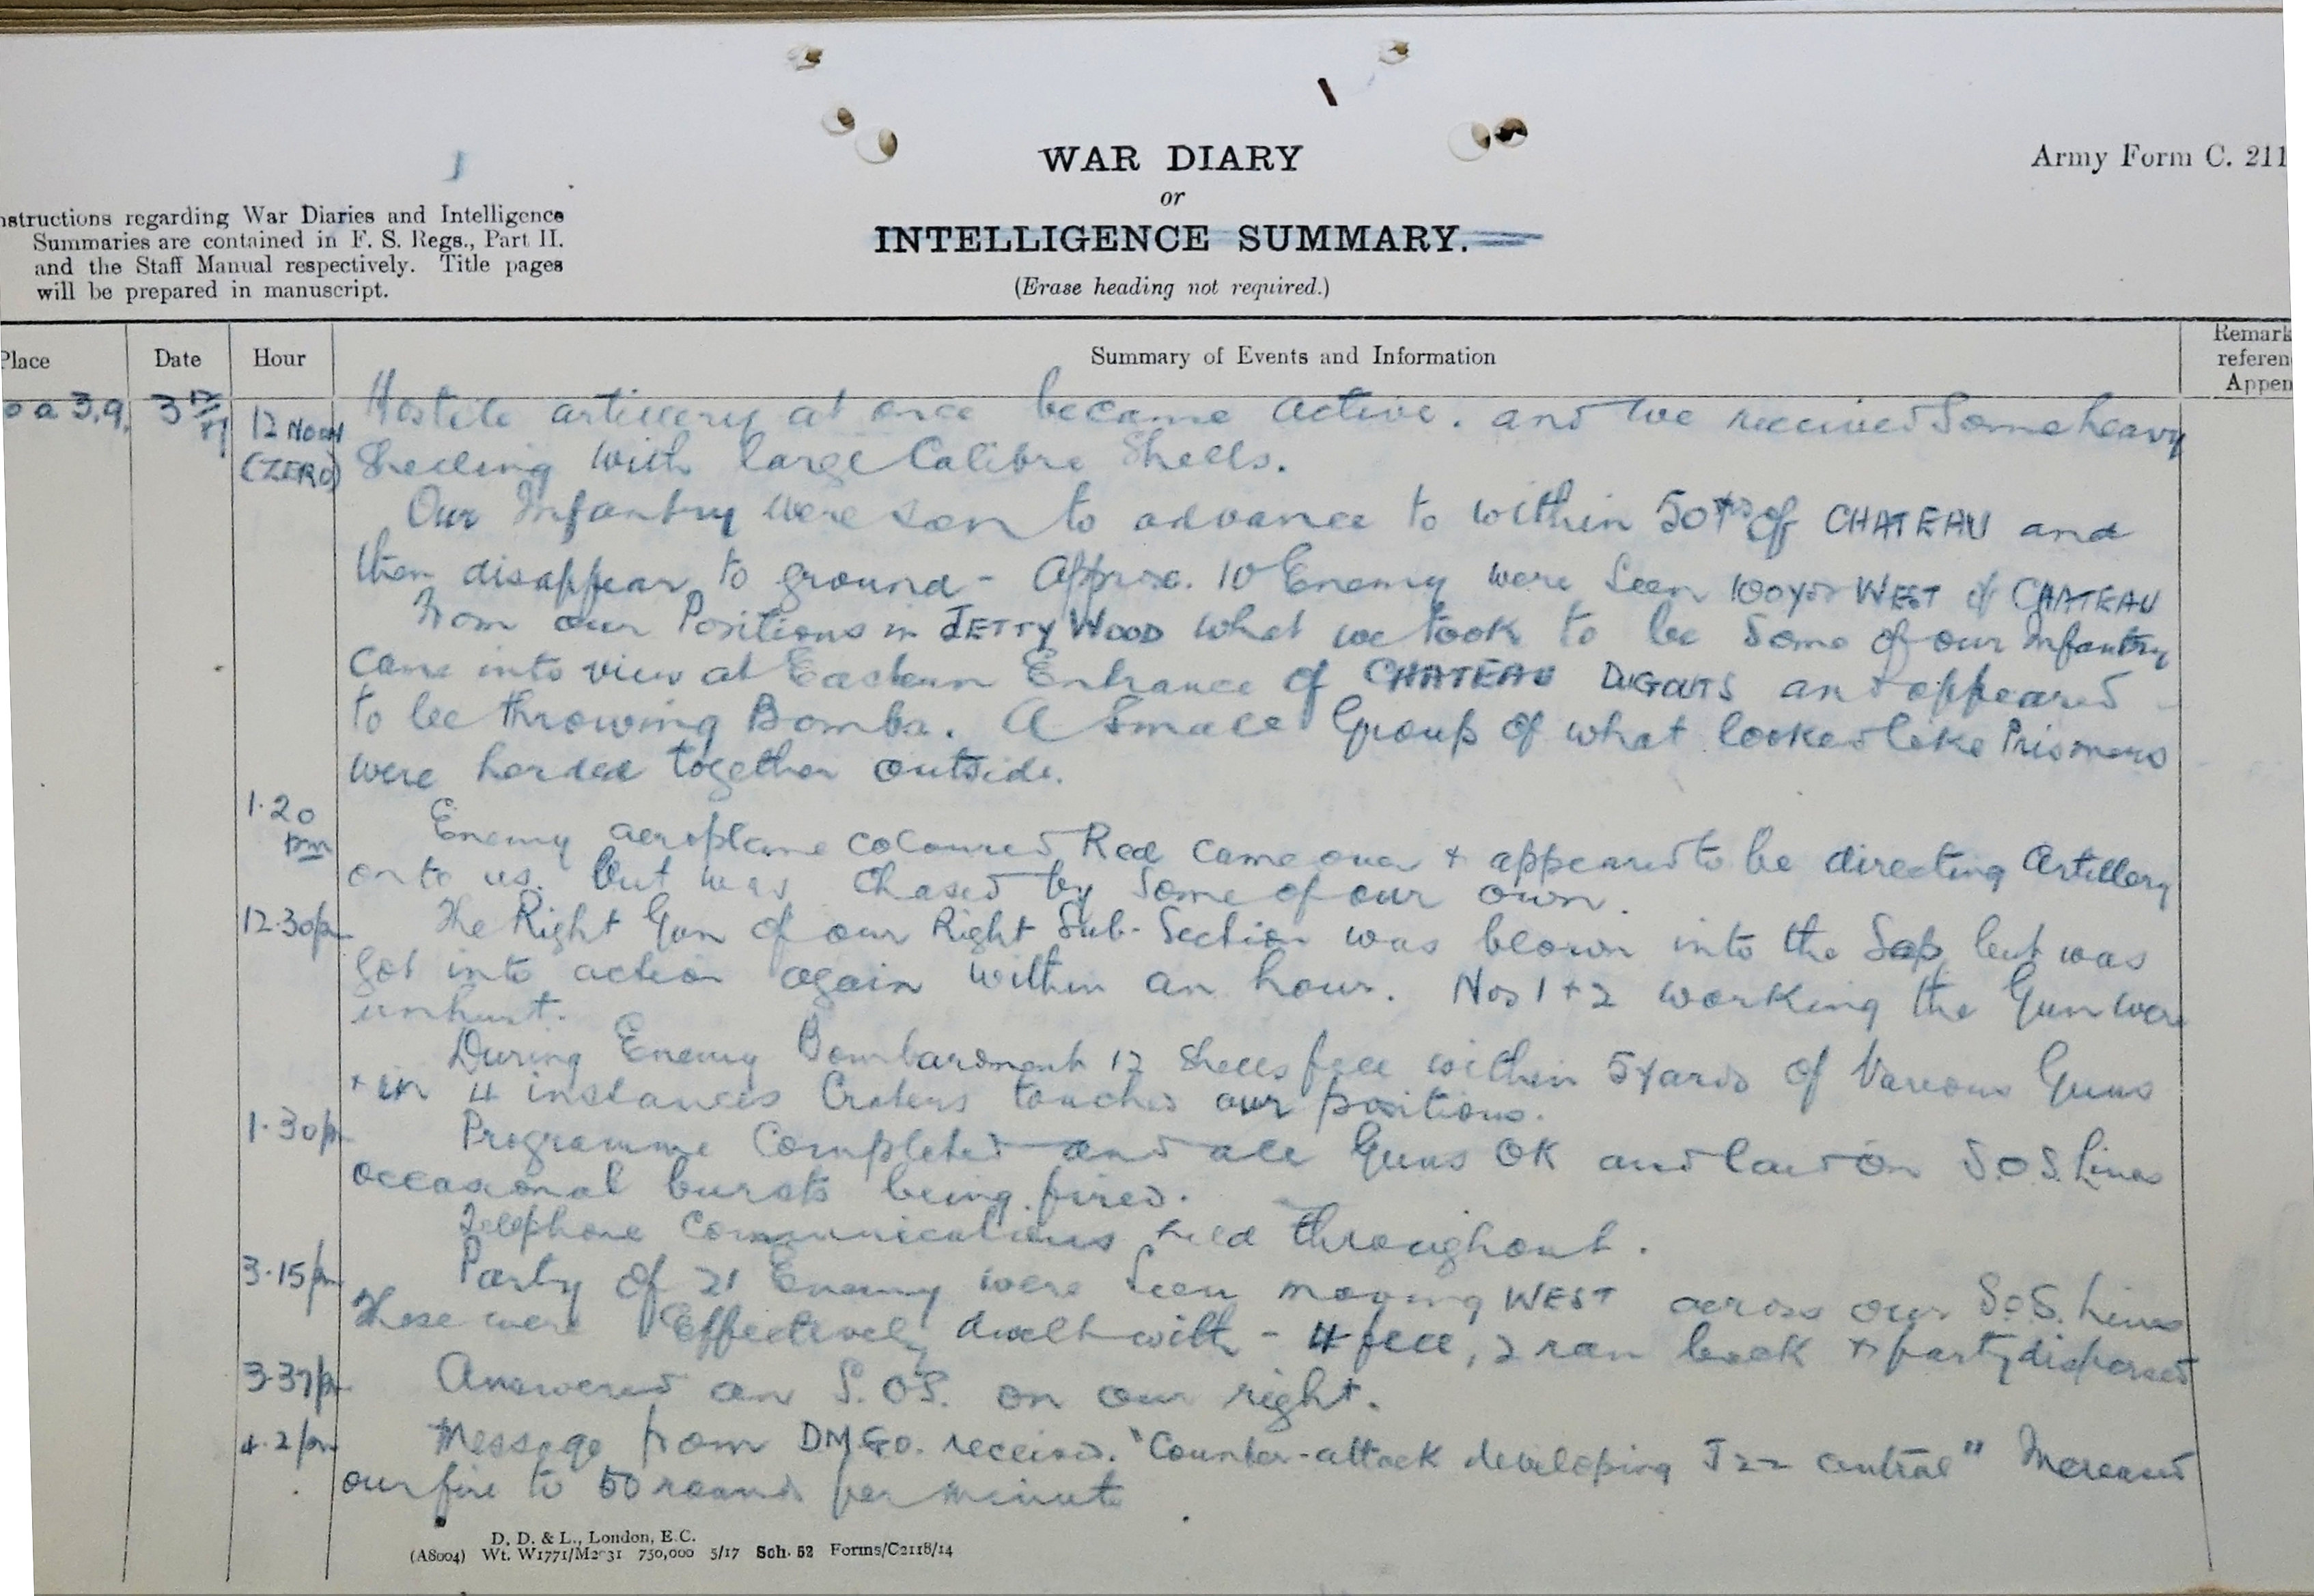 WAR DIARY
or
INTELLIGENCE SUMMARY.
(Erase heading not required.)
Army Form C. 211
nstructions regarding War Diaries and Intelligence
Summaries are contained in F. S. Regs., Part II.
and the Staff Manual respectively. Title pages
will be prepared in manuscript.
Place Date Hour Summary of Events and Information Remark
referen
Appen
a 3.9. 3 12 Noon Hostile artillery at once became active. and we received some heavy
(ZERO) Shelling with large Calibre Shells.
Our Infantry were seen to advance to within 50 yds of CHATEAU and
then disappear to ground - Approx. 10 Enemy were seen 100 yds WEST of CHATEAU
From our Positions in JETTY WOOD what we took to be some of our Infantry
came into view at Eastern Entrance of CHATEAU DUGOUTS and appeared
to be throwing Bombs. A small Group of what looked like Prisoners
were herded together outside.
1.20 pm Enemy aeroplane coloured Red came over + appeared to be directing Artillery
onto us. but was chased by some of our own.
12.30pm The Right Gun of our Right Sub-Section was blown into the Sap but was
got into action again within an hour. Nos 1 + 2 working the Gun were
unhurt.
During Enemy Bombardment 12 shells fell within 5 yards of Various Guns
+ in 4 instances Craters touched our positions.
1.30pm Programme Completed and all Guns OK and laid on S.O.S. Lines
occasional bursts being fired.
Telephone Communications held throughout.
3.15pm Party of 21 Enemy were seen moving WEST across our S.O.S. Lines
These were Effectively dealt with - 4 fell, 2 ran back + party dispersed
3.37pm Answered an S.O.S. on our right.
4.2pm Message from DMGO. received. "Counter-attack developing J22 central" Increased
our fire to 50 rounds per minute
D. D. & L., London, E.C.
(A8004) Wt. W1771/M2031 750,000 5/17 Sch. 52 Forms/C2118/14